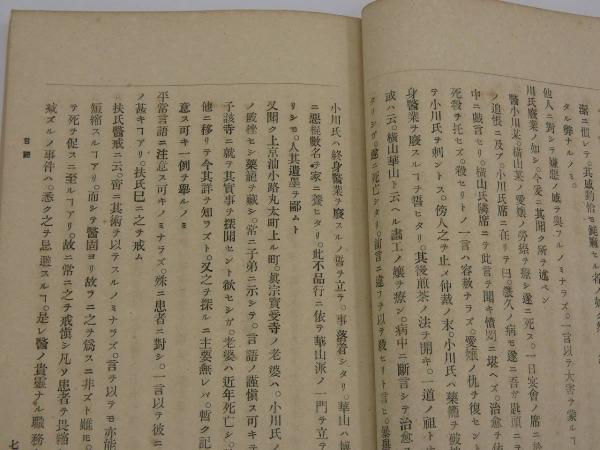 潔ニ慣レテ。其感
タル弊ナルノミ。
他人ニ對シテ嫌惡ノ娥ヲ與フルノミナラズ。一言以テ大害ヲ蒙ルー
川氏廢業ノ如シ。今爰ニ其聞ク所ヲ述ベン
醫小川某。横山某ノ愛孃ノ勞瘵ヲ療シ遂ニ死ス。一日宴會ノ席ニ於
ノ追悵ニ及ブ。小川氏席ニ在リテ曰。積久ノ病モ遂ニ吾ガ匙頭ニテ
中ニ戯言セリ。横山氏隣席ニテ此言ヲ聞キ憤悶ニ堪ヘズ。治愈ヲ依
死殺ヲ托セズ。殺セリトノ一言ハ容赦ナラズ。愛孃ノ仇ヲ復セント
テ小川氏ヲ刺ントス。傍人之ヲ止メ仲裁ノ末。小川氏ハ藥籠ヲ破棄
身醫業ヲ廢スルヿヲ誓ヒタリ。其後煎茶ノ法ヲ開キ。一道ノ祖ト
或ハ云。横山華山ト云ヘル畵工ノ孃ヲ療シ。病中ニ斷言シテ治愈ス
タリシガ。遂ニ死亡シタリ。前言ニ違フヲ以テ殺セリト言ヒ。暴
小川氏ハ終身醫業ヲ廢スルノ
ヲ立テ。事落着シタリ。華山ハ
ニ惡棍數名ヲ家ニ養ヒタリ。此不品行ニ依テ華山派ノ一門ヲ立テ
リシモ。人其遺墨ヲ鄙ムト
又聞ク上京油小路丸太町上ル町。眞宗寳愛寺ノ老婆ハ。小川氏ノ
ノ破棰セシ藥籠ヲ藏シ。常ニ子弟ニ示シテ。言語ノ謹愼ス可キヲ
子該寺ニ就テ其實事ヲ探聞セント欲セシガ。老婆ハ近年死亡シ。
他ニ移リテ今其詳ヲ知ラズト。又之ヲ探ルニ主要無レバ。暫ク記
意ス可キ一例ヲ擧ルノミ
平常言語ニ注意ス可キノミナラズ。殊ニ患者ニ對シ。一言以テ彼ニ
ノ甚キヿアリ。扶氏已ニ之ヲ戒ム
扶氏醫戒ニ云。啻ニ其術ヲ以テスルノミナラズ。言ヲ以テモ亦能
短縮スルヿアリ。而シテ醫固ヨリ故ラニ之ヲ爲スニ非ズト雖モ。
テ死ヲ促スニ至ルヿアリ。故ニ常ニ之ヲ戒愼シ凡ソ患者ヲ畏縮
減ズルノ事件ハ。悉ク之ヲ忌避スルヿ。是レ醫ノ貴重ナル職務
言語
七